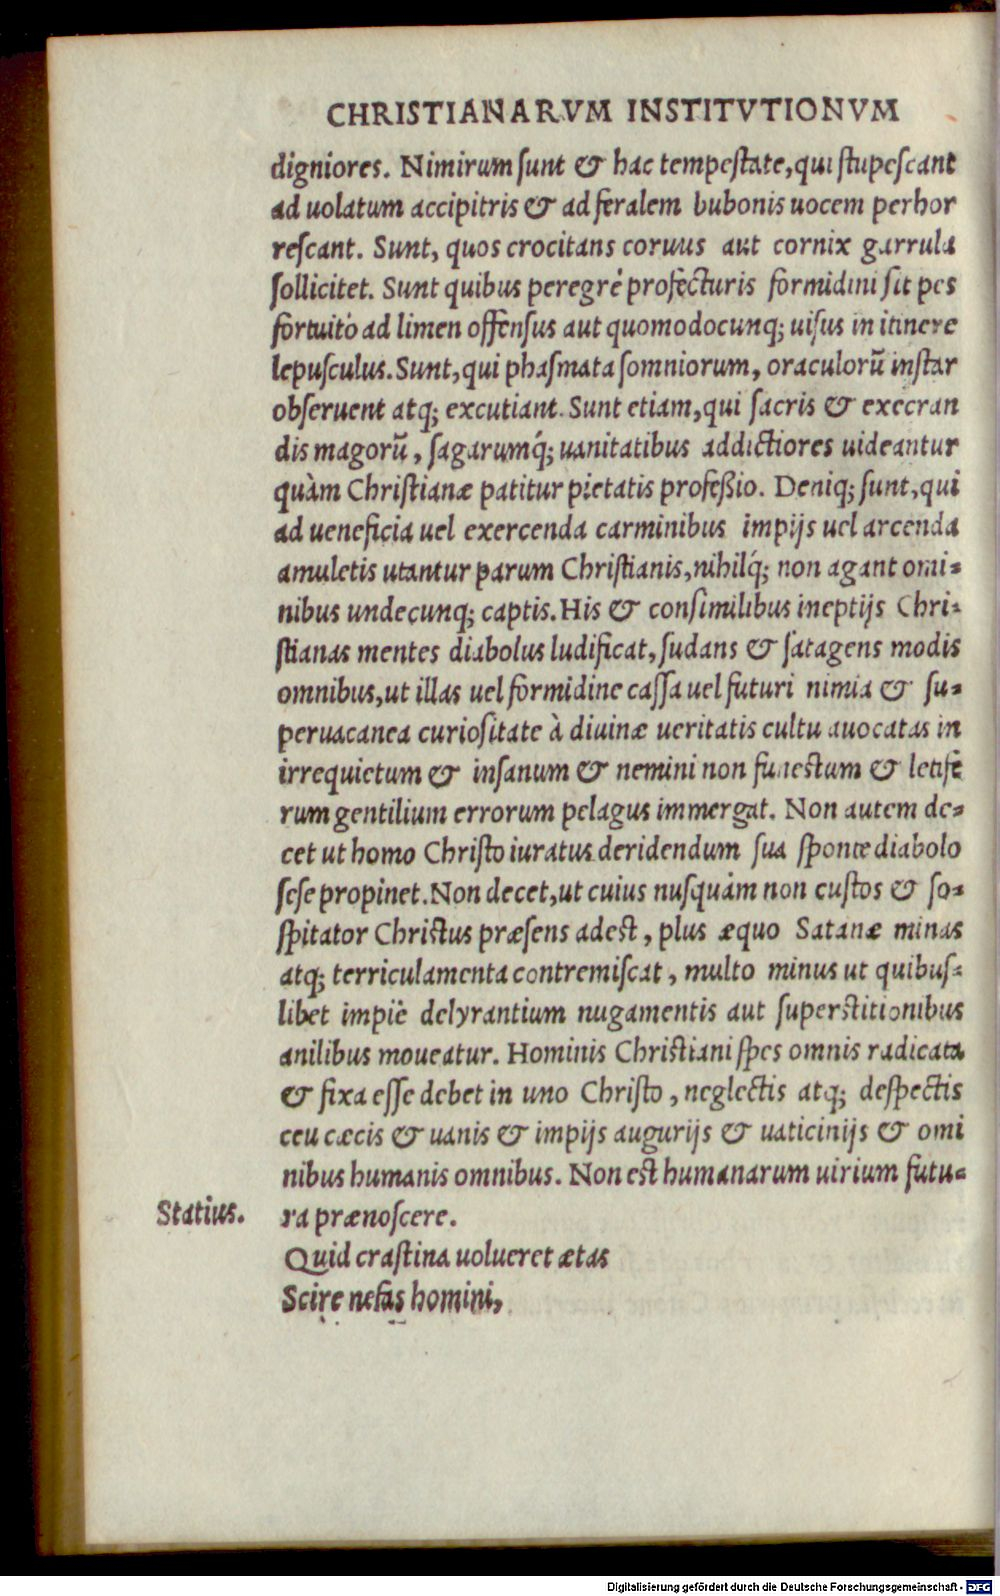 CHRISTIANARVM INSTITVTIONVM
digniores. Nimirum sunt & hac tempestate, qui stupescant
ad uolatum accipitris & ad feralem bubonis uocem perhor
rescant. Sunt, quos crocitans coruus aut cornix garrula
sollicitet. Sunt quibus peregrè profecturis formidini sit pes
fortuitò ad limen offensus aut quomodocunq; uisus in itinere
lepusculus. Sunt, qui phasmata somniorum, oraculorũ instar
obseruent atq; excutiant. Sunt etiam, qui sacris & execran
dis magorũ, sagarumq́; uanitatibus addictiores uideantur
quàm Christianæ patitur pietatis professio. Deniq; sunt, qui
ad ueneficia uel exercenda carminibus impijs uel arcenda
amuletis utantur parum Christianis, nihilq́; non agant omi-
nibus undecunq; captis. His & consimilibus ineptijs Chri-
stianas mentes diabolus ludificat, sudans & satagens modis
omnibus, ut illas uel formidine cassa uel futuri nimia & su-
peruacanea curiositate à diuinæ ueritatis cultu auocatas in
irrequietum & insanum & nemini non funestum & letife
rum gentilium errorum pelagus immergat. Non autem de-
cet ut homo Christo iuratus deridendum sua sponte diabolo
sese propinet. Non decet, ut cuius nusquàm non custos & so-
spitator Christus præsens adest, plus æquo Satanæ minas
atq; terriculamenta contremiscat, multo minus ut quibus-
libet impiè delyrantium nugamentis aut superstitionibus
anilibus moueatur. Hominis Christiani spes omnis radicata
& fixa esse debet in uno Christo, neglectis atq; despectis
ceu cæcis & uanis & impijs augurijs & uaticinijs & omi
nibus humanis omnibus. Non est humanarum uirium futu-
Statius. ra prænoscere.
Quid crastina uolueret ætas
Scire nefas homini,
Digitalisierung gefördert durch die Deutsche Forschungsgemeinschaft - DFG